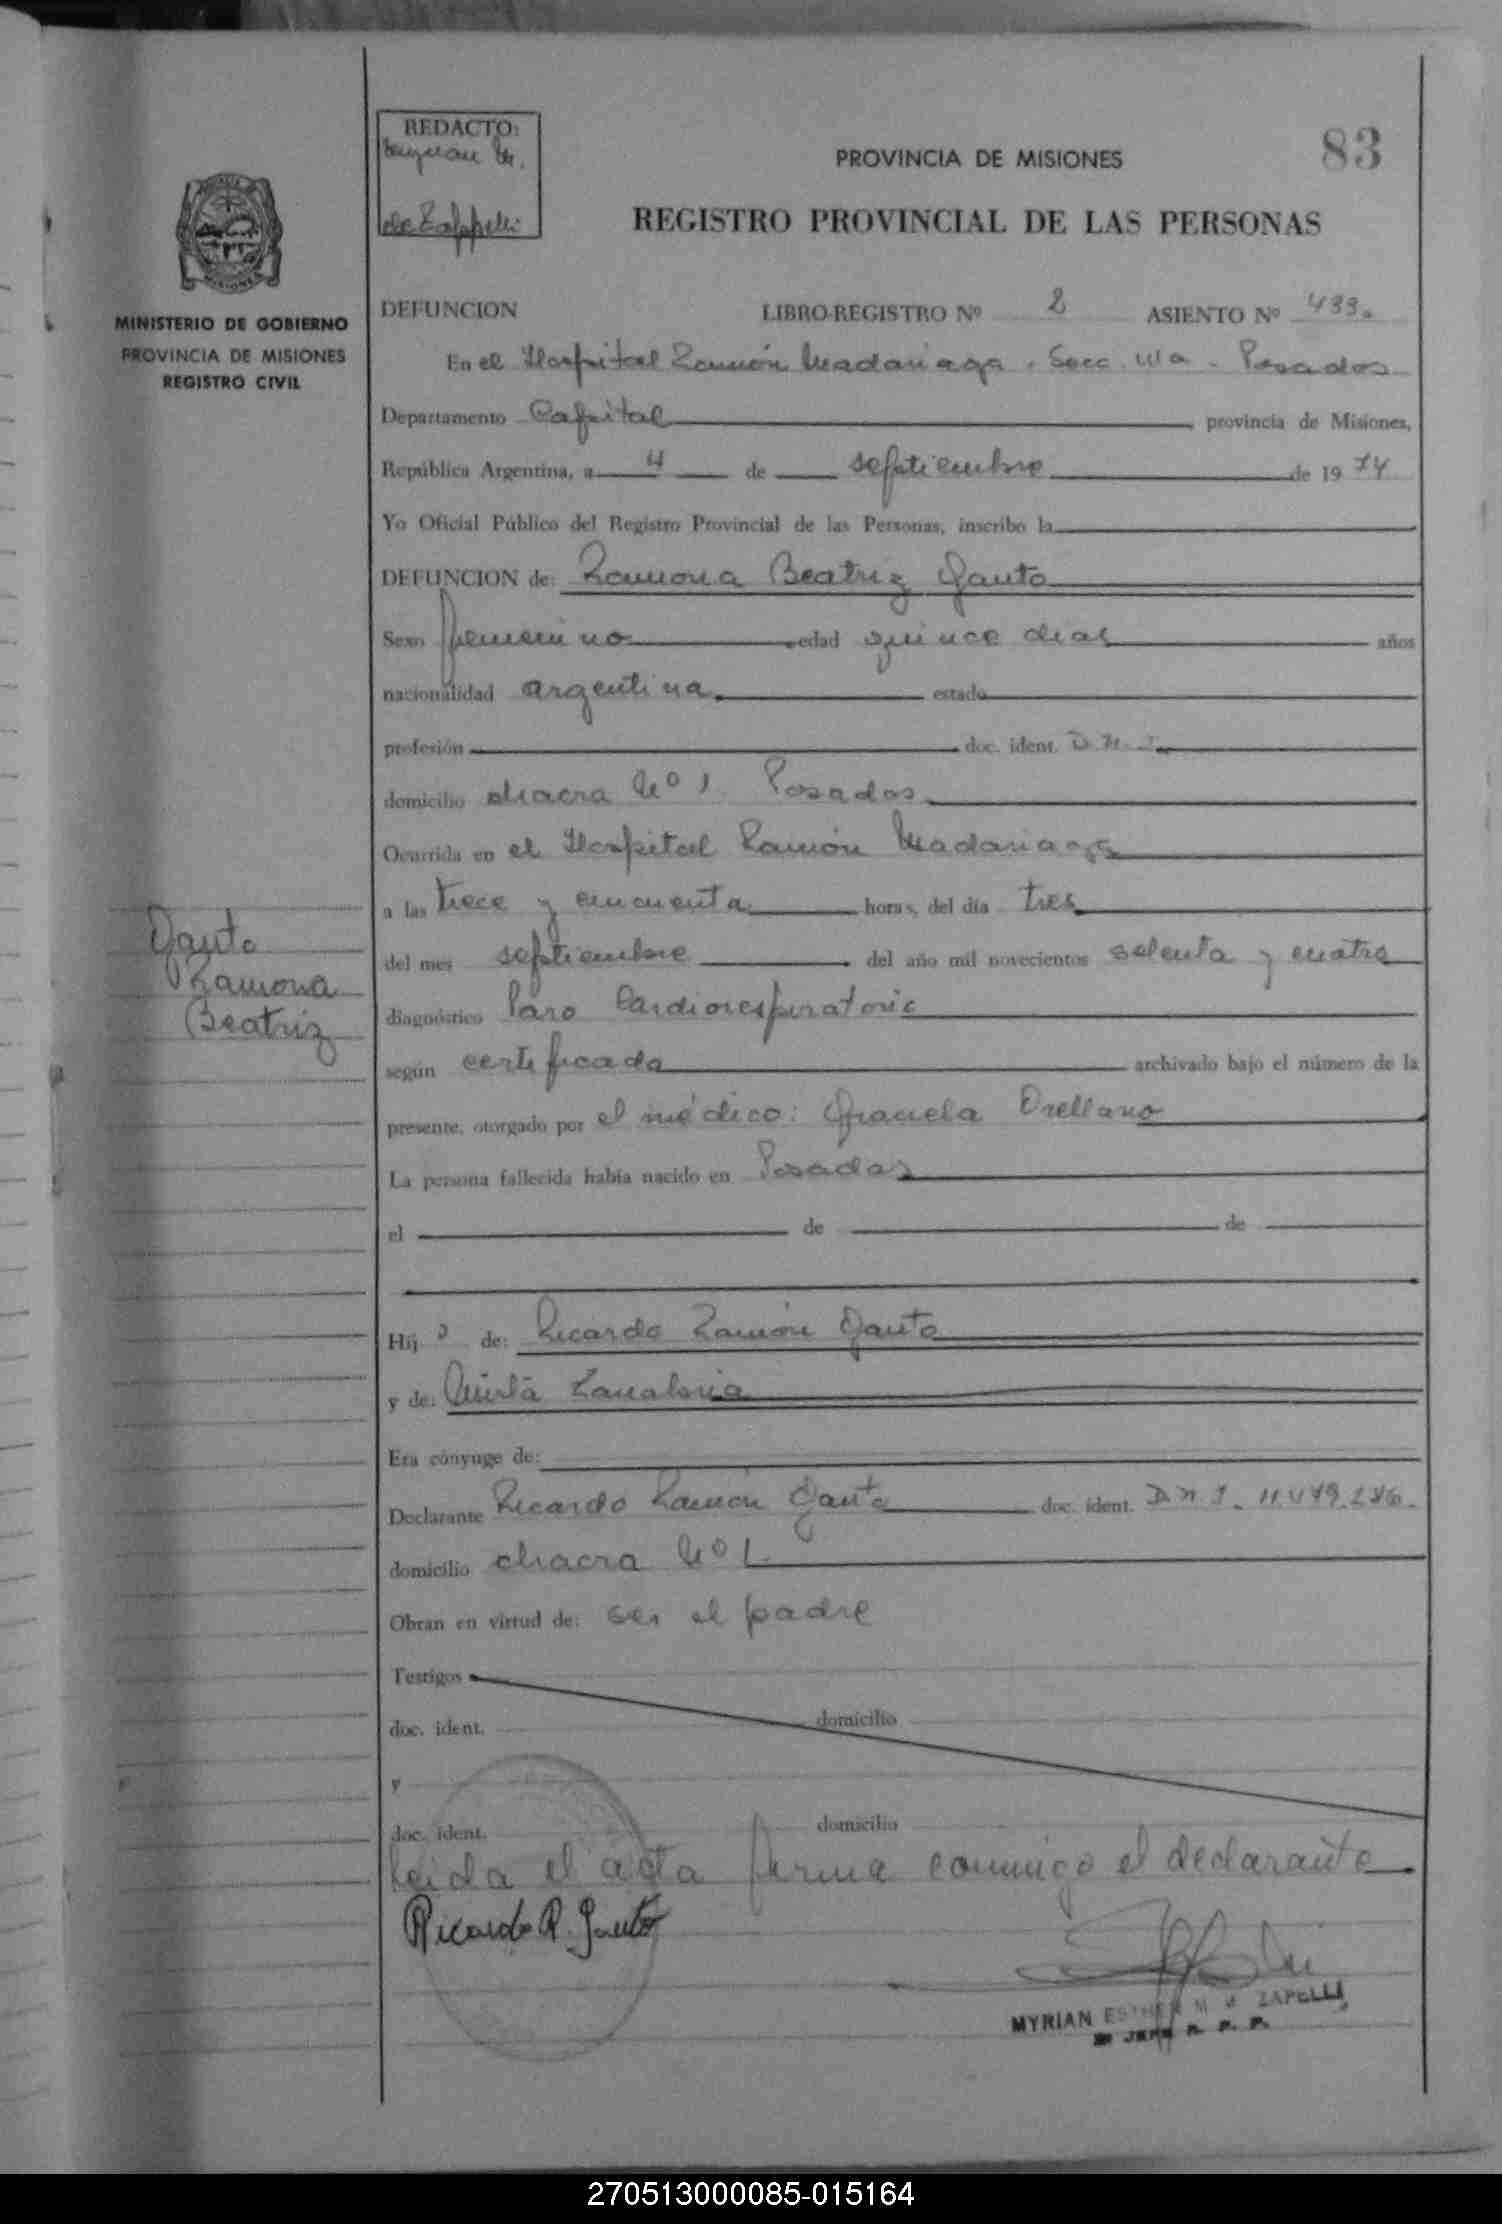 REDACTO:
83
PROVINCIA DE MISIONES
de Zappelli
REGISTRO PROVINCIAL DE LAS PERSONAS
MINISTERIO DE GOBIERNO
PROVINCIA DE MISIONES
REGISTRO CIVIL
DEFUNCION LIBRO-REGISTRO Nº 2 ASIENTO Nº 433.
En el Hospital Ramón Madariaga. Secc. Posadas
Departamento Capital provincia de Misiones,
República Argentina, a 4 de septiembre de 1974
Yo Oficial Público del Registro Provincial de las Personas, inscribo la
DEFUNCION de: Ramona Beatriz Gauto
Sexo femenino edad quince dias años
nacionalidad argentina estado
profesión doc. ident. D.N.I.
domicilio chacra Nº 1 Posadas
Ocurrida en el Hospital Ramón Madariaga
a las trece y cincuenta horas, del día tres
del mes septiembre del año mil novecientos setenta y cuatro
Gauto
Ramona
Beatriz
diagnóstico Paro Cardiorespiratorio
según certificado archivado bajo el número de la
presente, otorgado por el médico: Graciela Orellano
La persona fallecida había nacido en Posadas
el de de
Hij a de: Ricardo Ramón Gauto
y de: Mirta
Era cónyuge de:
Declarante Ricardo Ramón Gauto doc. ident. D.N.I.
domicilio chacra Nº 1
Obran en virtud de: ser el padre
Testigos
doc. ident. domicilio
y
doc. ident. domicilio
leida el acta firma conmigo el declarante
Ricardo R. Gauto
MYRIAN ESTHER M. ZAPELLI
JEFE R. P. P.
270513000085-015164